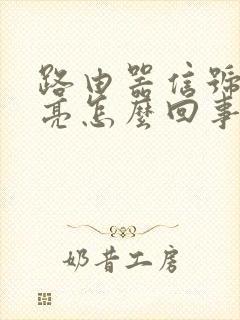 路由器信號
亮怎麼回事
奶昔工房